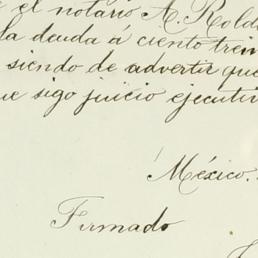 el notario A. Rold
la deuda á ciento trein
siendo de advertir que
que sigo juicio ejecutiv
México.
Firmado